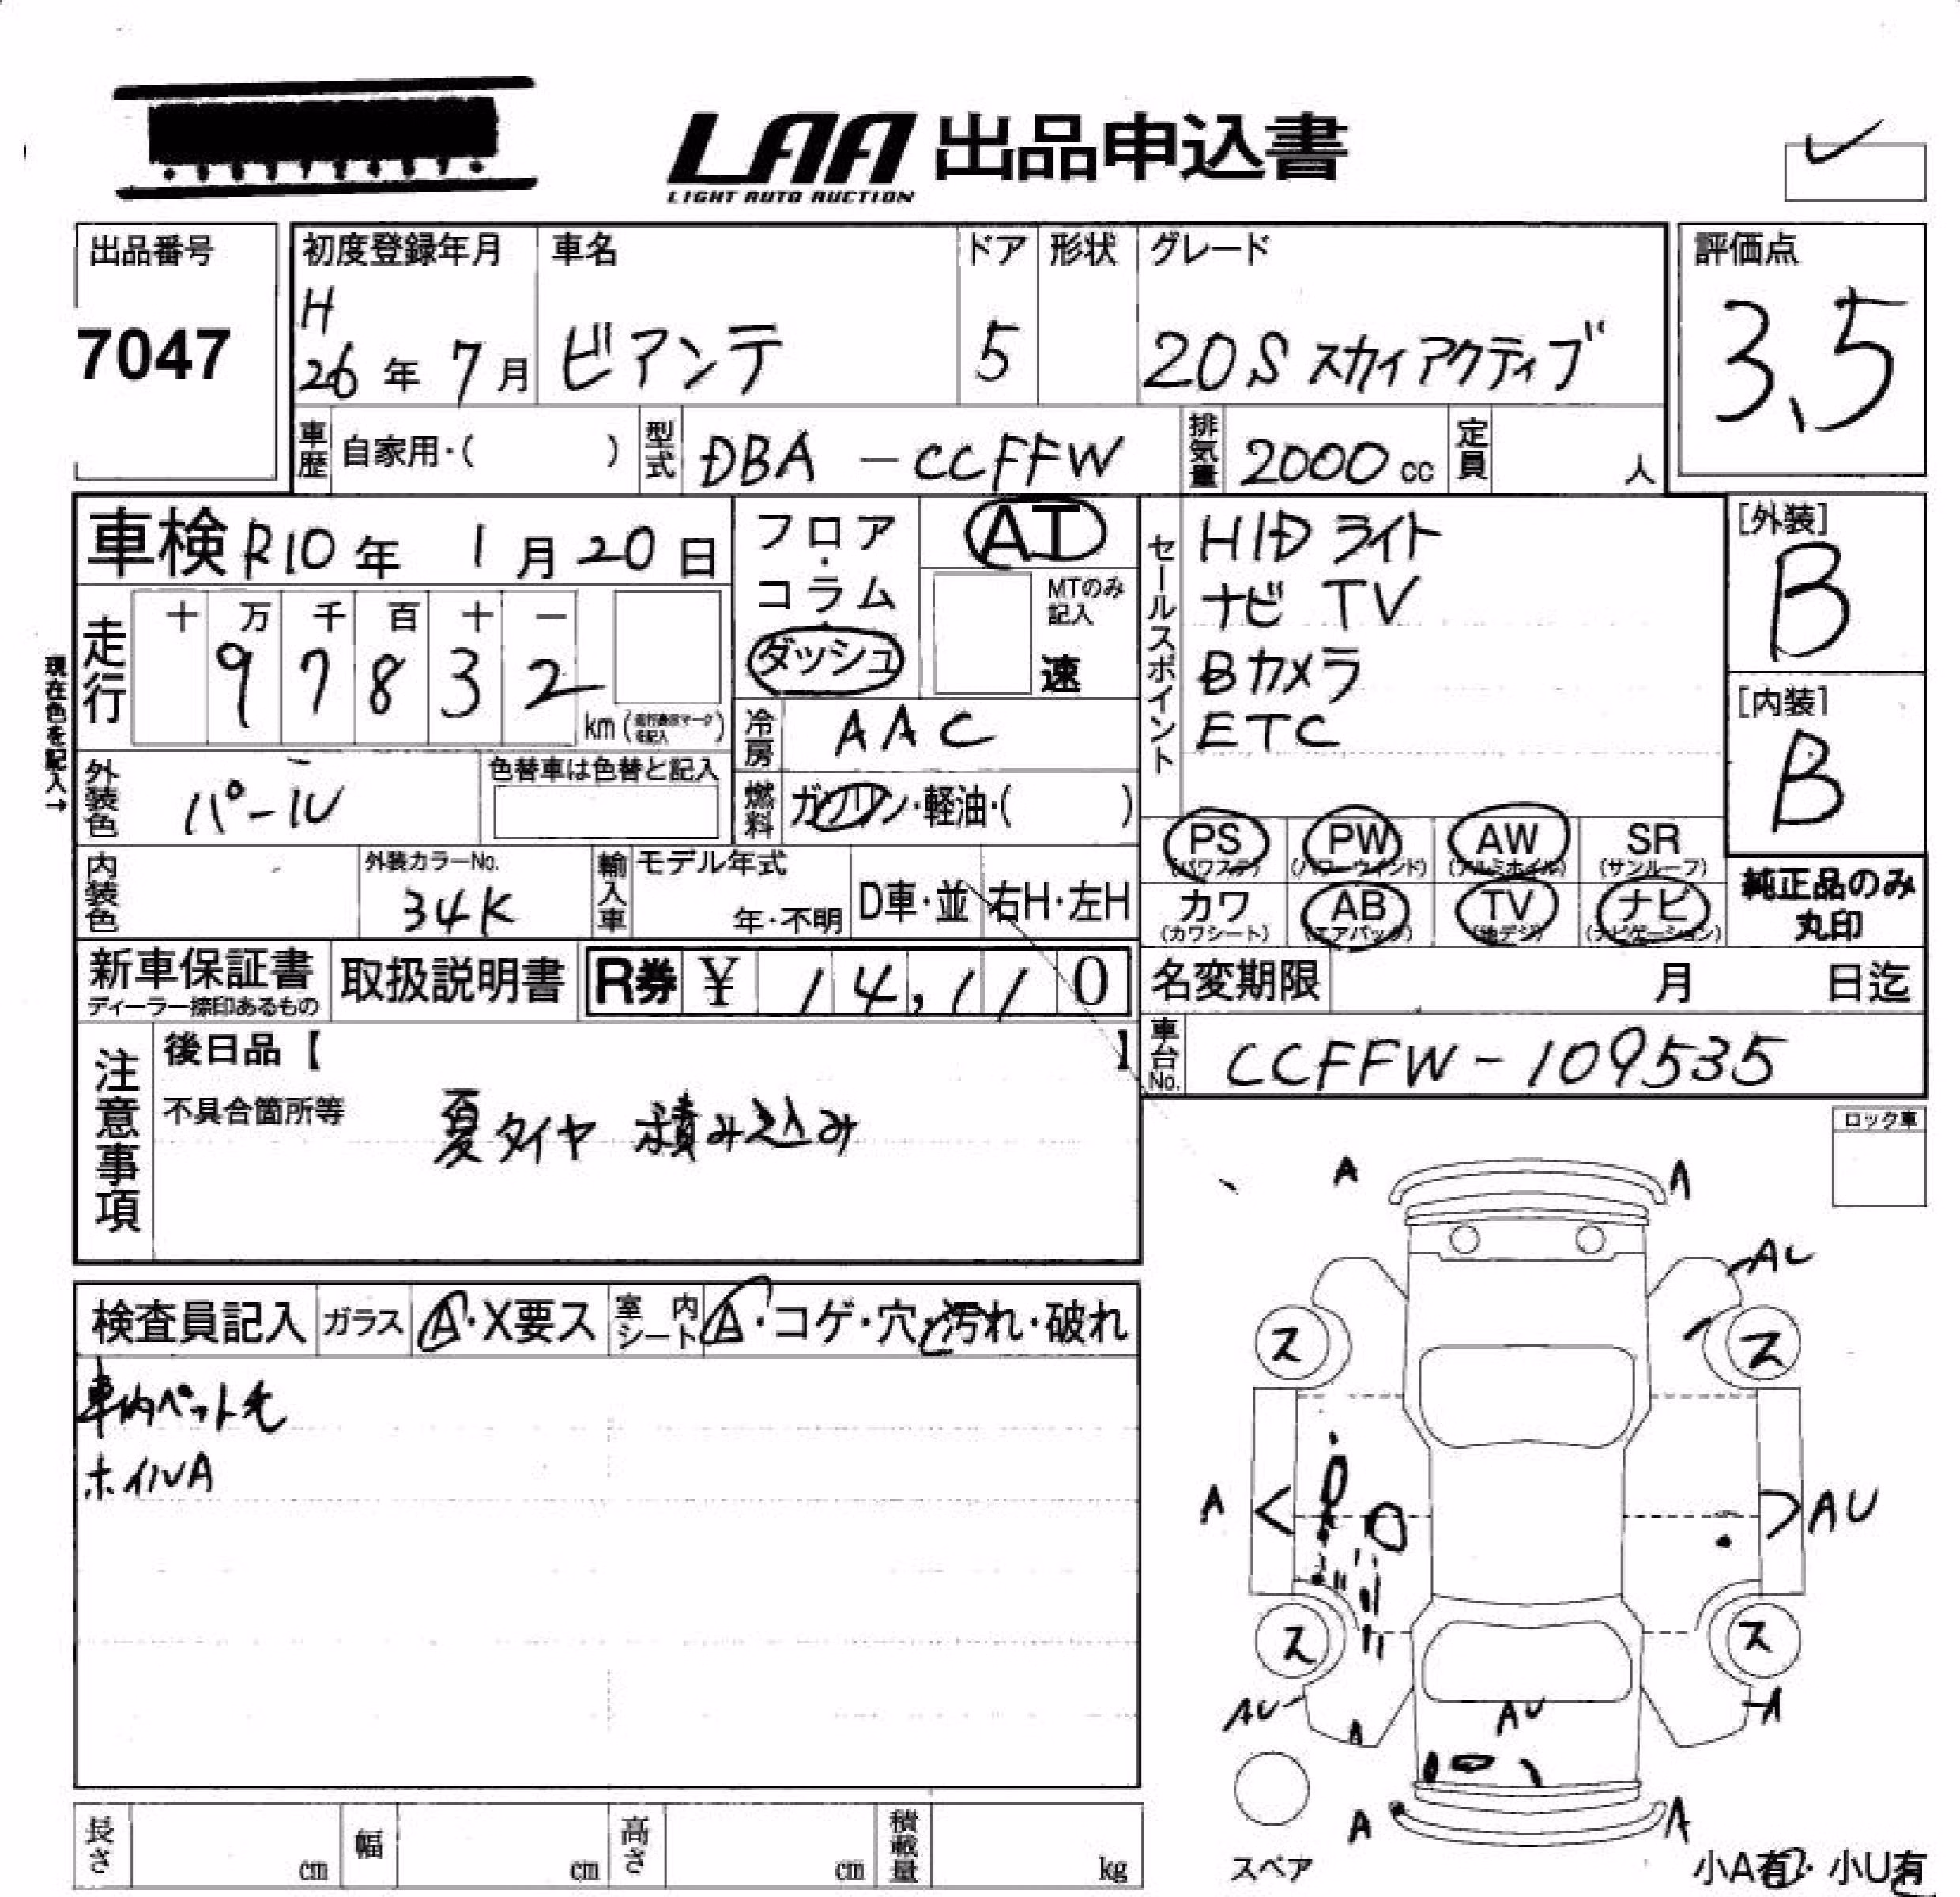 LAA 出品申込書
LIGHT AUTO AUCTION
出品番号
7047
初度登録年月
H
26年 7月
車名
ビアンテ
ドア
5
形状
グレード
20S スカイアクティブ
評価点
3.5
車歴 自家用・( )
型式 DBA-CCFFW
排気量 2000 cc
定員 人
車検 R10年 1月 20日
現在色を記入→
走行 十 万 千 百 十 一
9 7 8 3 2
km (走行換算マークを記入)
フロア・コラム
ダッシュ
AT
MTのみ記入
速
冷房 AAC
燃料 ガソリン・軽油・( )
セールスポイント
HIDライト
ナビ TV
Bカメラ
ETC
[外装]
B
[内装]
B
外装色 パール
色替車は色替と記入
内装色
外装カラーNo.
34K
輸入車
モデル年式
年・不明
D車・並
右H・左H
PS (パワステ)
PW (パワーウインド)
AW (アルミホイル)
SR (サンルーフ)
カワ (カワシート)
AB (エアバック)
TV (地デジ)
ナビ (ナビゲーション)
純正品のみ
丸印
新車保証書
ディーラー捺印あるもの
取扱説明書
R券 ¥ 14,110
名変期限 月 日迄
車台No. CCFFW-109535
注意事項
後日品【 】
不具合箇所等
夏タイヤ 積み込み
ロック車
検査員記入
ガラス A・X要ス
室内シート A・コゲ・穴・汚れ・破れ
車内ペット毛
ホイルA
A A
AU
ス ス
A AU
ス ス
AU A AU A
A A
スペア
小A有・小U有
長さ cm
幅 cm
高さ cm
積載量 kg